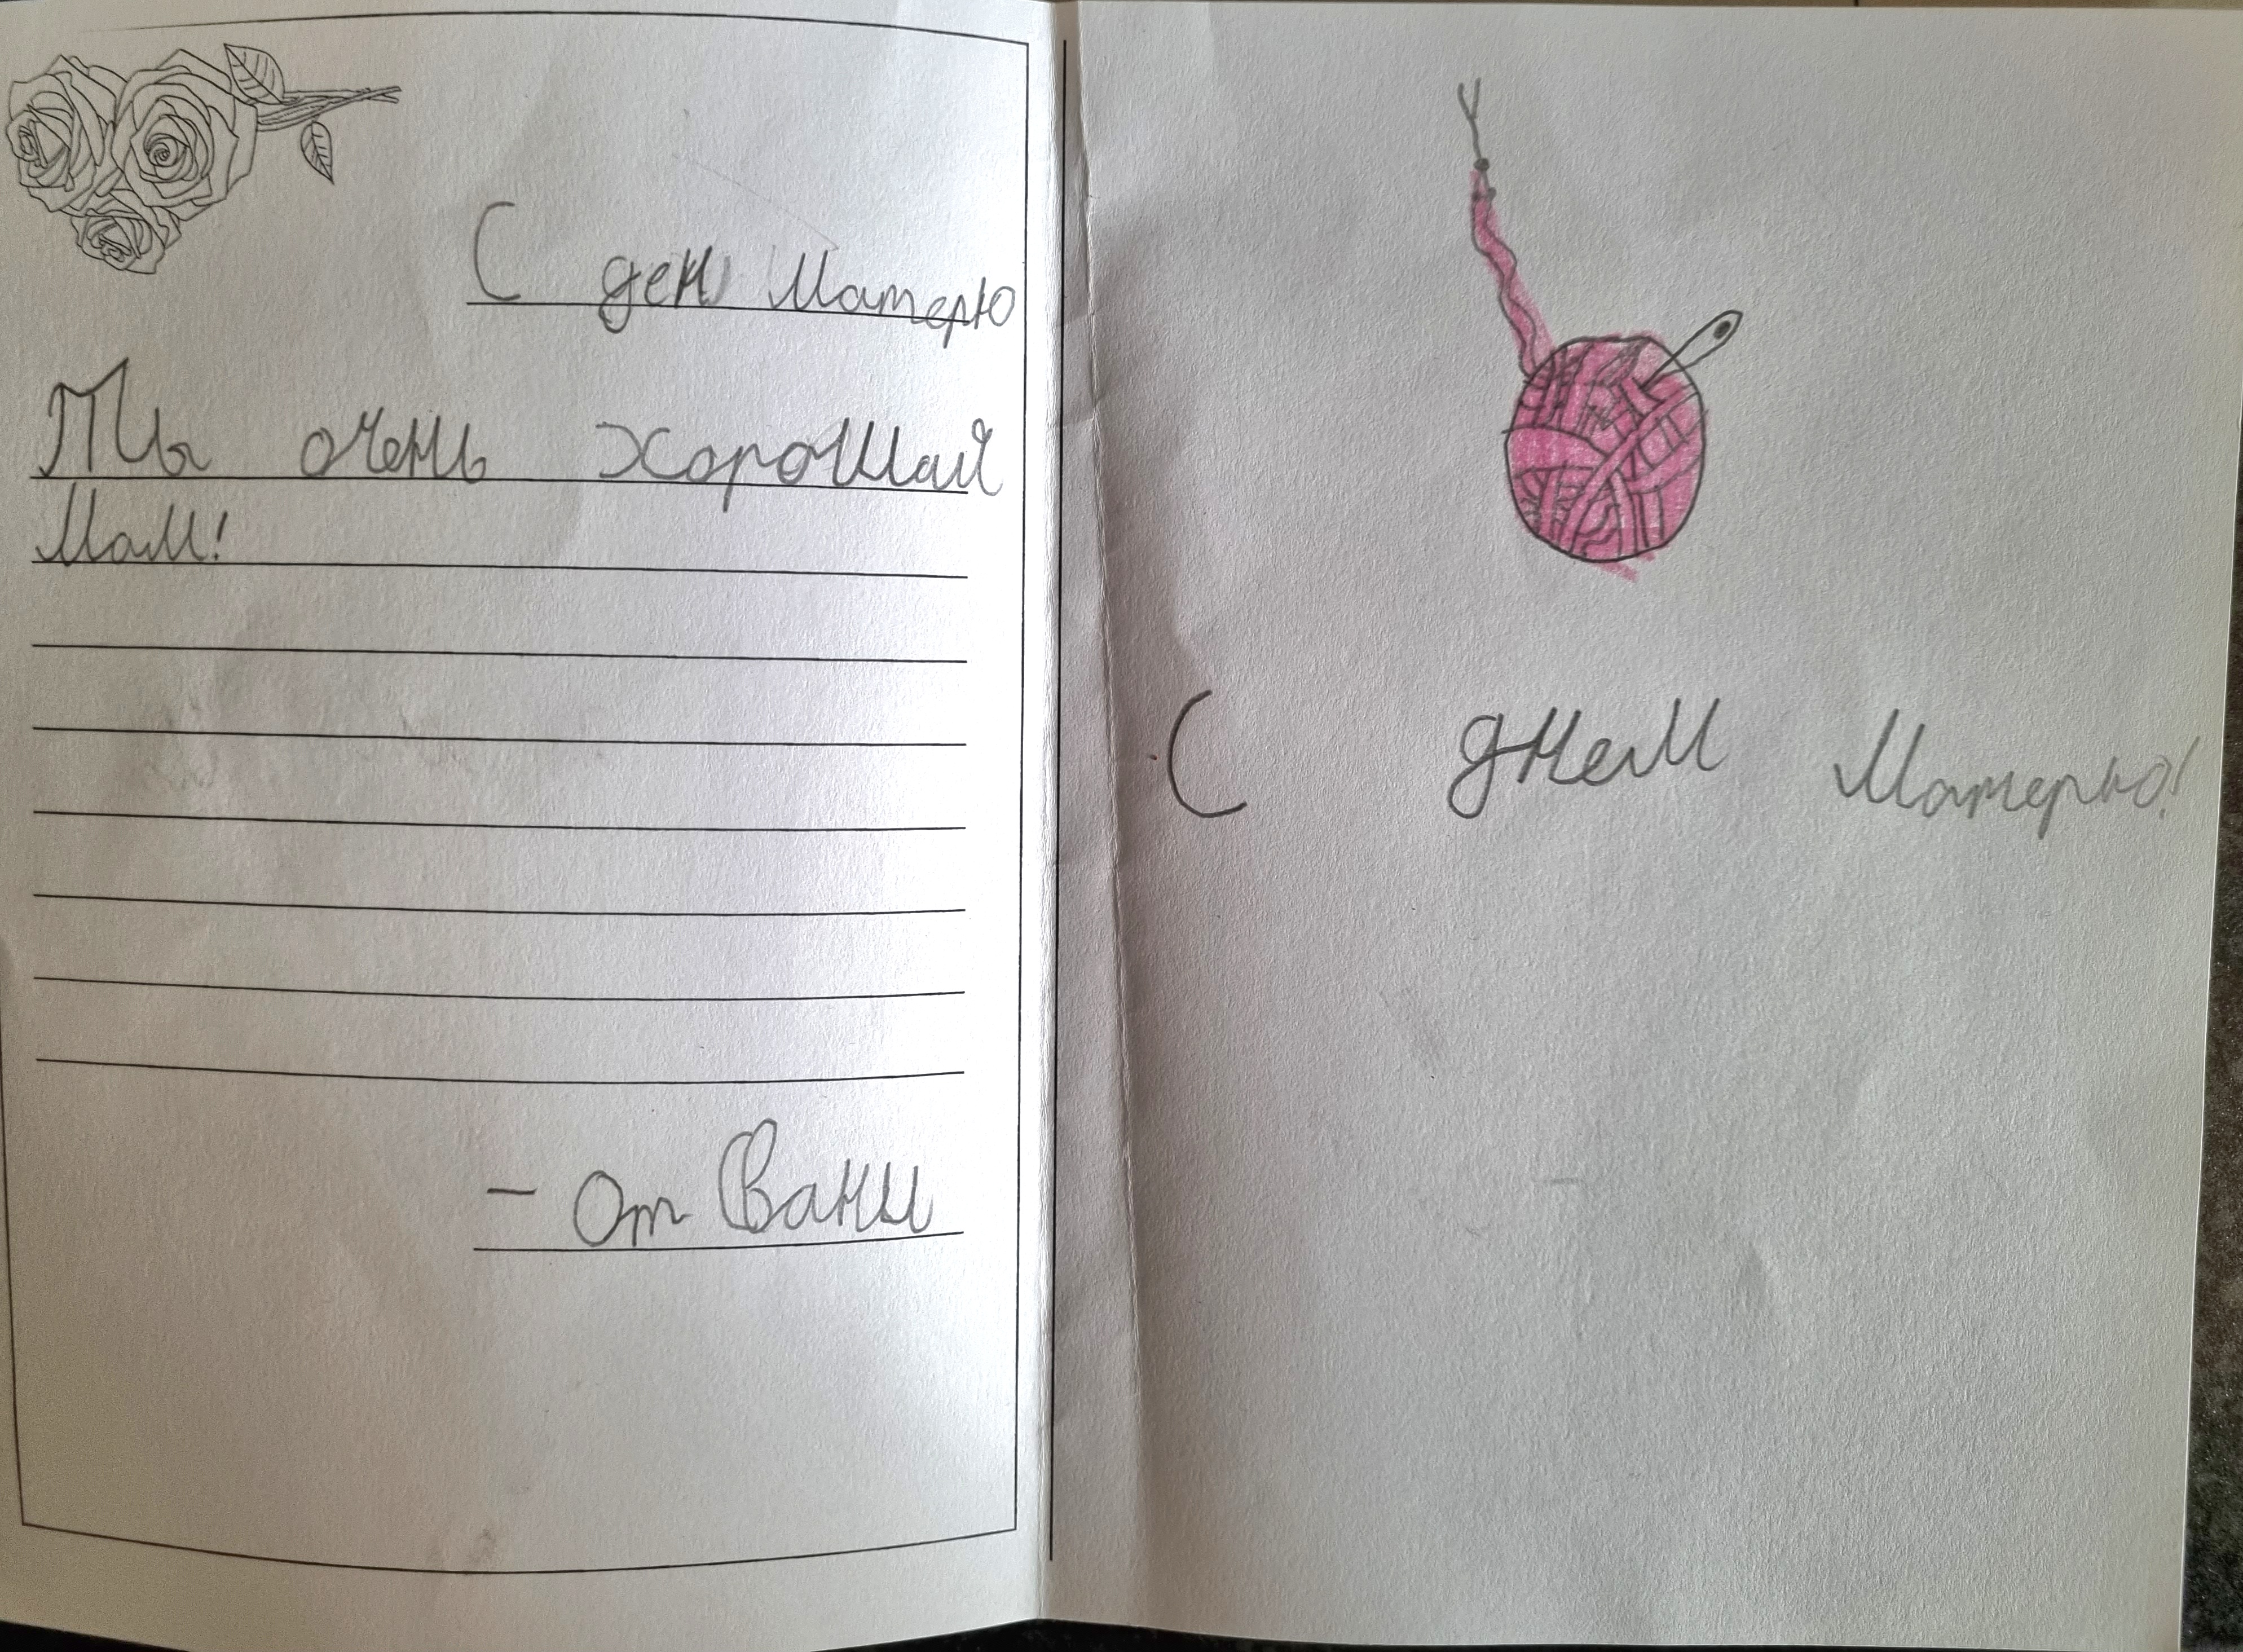 С ден Матерю
Ты очень хорошай
Мам!
- От Ваны
С днем Матерью!